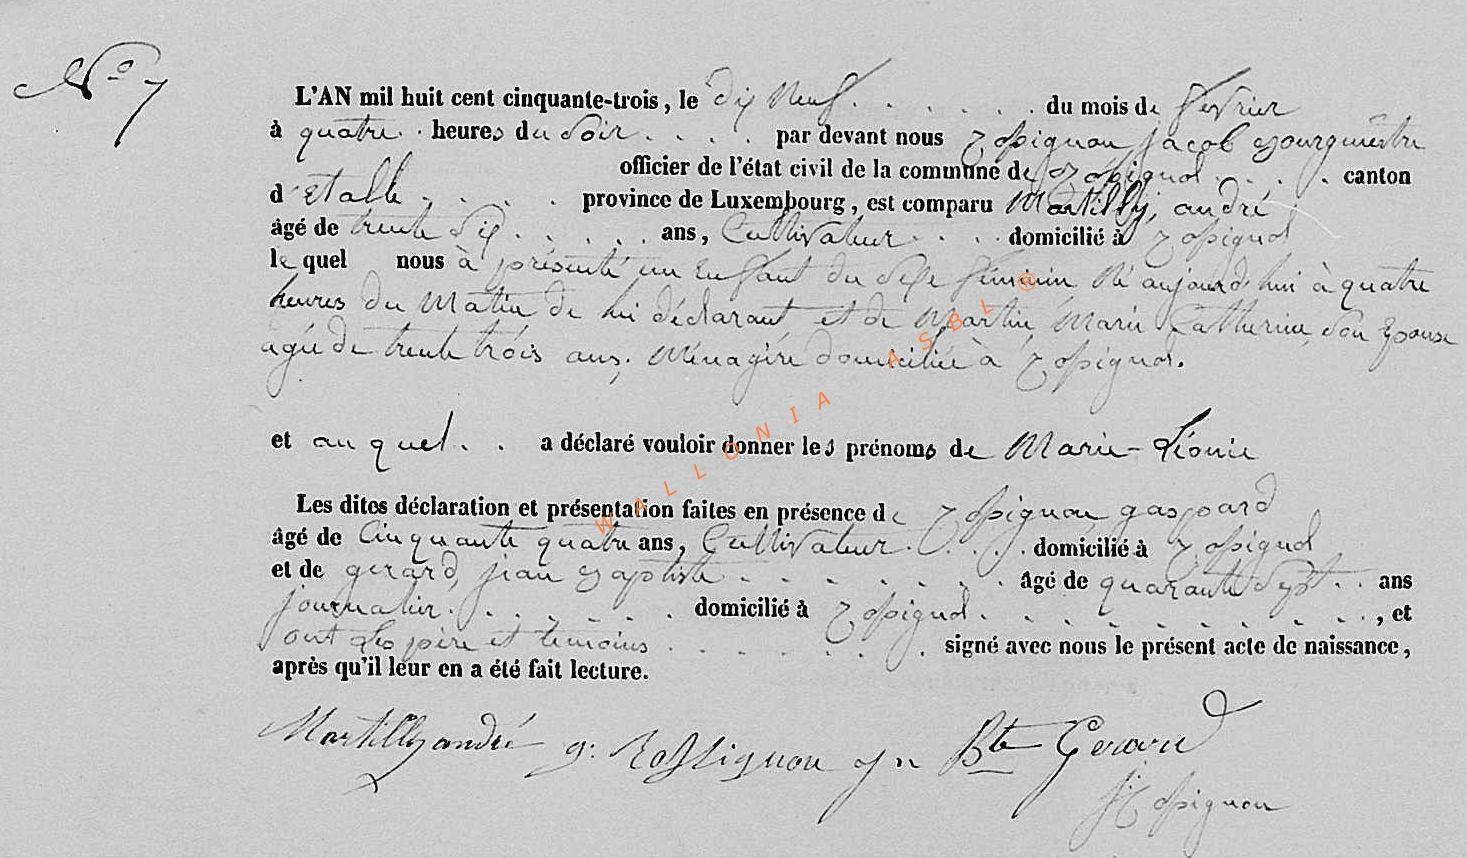 N° 7
L'AN mil huit cent cinquante-trois, le dix neuf . . . . . . du mois de fevrier
à quatre . heures du soir . . . . par devant nous Rossignon jacob Bourgmestre
officier de l'état civil de la commune de Rossignol . . . . canton
d'Etalle . . . . province de Luxembourg, est comparu Martilly, andré
âgé de trente six . . . . . ans, Cultivateur . . . domicilié à Rossignol
le quel nous à présenté un Enfant du sexe féminin né aujourd'hui à quatre
heures du Matin de lui déclarant, et de Martin, Marie Catherine, son Epouse
agée de trente trois ans, Ménagère domiciliée à Rossignol.
et au quel . . a déclaré vouloir donner les prénoms de Marie-Léonie
Les dites déclaration et présentation faites en présence de Rossignon gaspard
âgé de Cinquante quatre ans, Cultivateur . . . . domicilié à Rossignol
et de gerard, jean Baptiste . . . . . . . âgé de quarante sept . . ans
journalier . . . . . . domicilié à Rossignol . . . . . . . . . . , et
ont les père et temoins . . . . . . signé avec nous le présent acte de naissance,
après qu'il leur en a été fait lecture.
Martilly andré g: Rossignon Bte Gerard
J Rossignon
WALLONIA ASBL ©